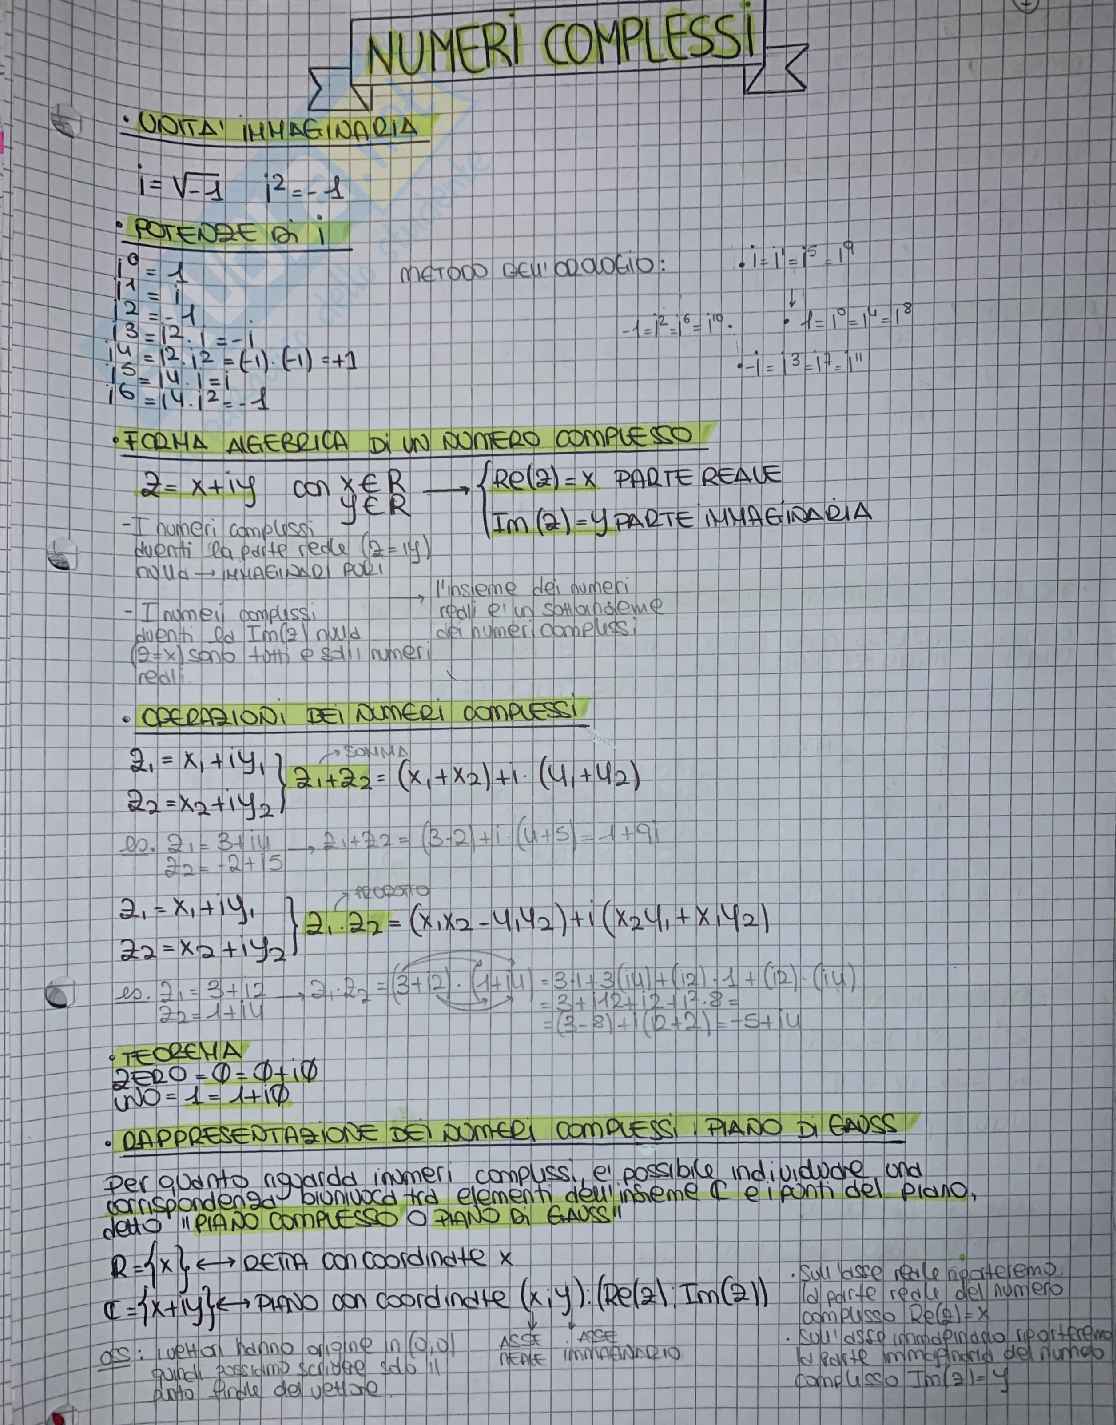 NUMERI COMPLESSI
• UNITA' IMMAGINARIA
i = √-1   i² = -1
• POTENZE Di i
i⁰ = 1
i¹ = i
i² = -1
i³ = i²·i = -i
i⁴ = i²·i² = (-1)·(-1) = +1
i⁵ = i⁴·i = i
i⁶ = i⁴·i² = -1
METODO DELL'OROLOGIO:
• i = i¹ = i⁵ = i⁹
-1 = i² = i⁶ = i¹⁰ •
• 1 = i⁰ = i⁴ = i⁸
• -i = i³ = i⁷ = i¹¹
• FORMA ALGEBRICA Di UN NUMERO COMPLESSO
z = x + iy   con x ∈ R → { Re(z) = x PARTE REALE
y ∈ R   Im(z) = y PARTE IMMAGINARIA
- I numeri complessi
aventi la parte reale (z = iy)
nulla → IMMAGINARI PURI
- I numeri complessi
aventi la Im(z) nulla
(z = x) sono tutti e soli i numeri
reali
→ l'insieme dei numeri
reali e' un sottoinsieme
dei numeri complessi
• OPERAZIONI DEI NUMERI COMPLESSI
z₁ = x₁ + iy₁
z₂ = x₂ + iy₂
→ SOMMA
z₁ + z₂ = (x₁ + x₂) + i · (y₁ + y₂)
es. z₁ = 3 + i4 → z₁ + z₂ = (3-2) + i · (4+5) = 1 + 9i
z₂ = -2 + i5
z₁ = x₁ + iy₁
z₂ = x₂ + iy₂
→ PRODOTTO
z₁ · z₂ = (x₁x₂ - y₁y₂) + i (x₂y₁ + x₁y₂)
es. z₁ = 3 + i2 → z₁·z₂ = (3+i2) · (1+i4) = 3·1 + 3(i4) + (i2)·1 + (i2)·(i4)
z₂ = 1 + i4   = 3 + i12 + i2 + i²·8 =
= (3-8) + i(12+2) = -5 + i4
• TEOREMA
ZERO = 0 = 0 + i0
UNO = 1 = 1 + i0
• RAPPRESENTAZIONE DEI NUMERI COMPLESSI: PIANO Di GAUSS
Per quanto riguarda i numeri complessi, e' possibile individuare una
corrispondenza biunivoca tra elementi dell'insieme ℂ e i punti del piano,
detto "PIANO COMPLESSO O PIANO Di GAUSS"
R = {x} ↔ RETTA con coordinate x
ℂ = {x + iy} ↔ PIANO con coordinate (x, y) : (Re(z), Im(z))
ASSE REALE
ASSE IMMAGINARIO
oss: i vettori hanno origine in (0,0)
quindi possiamo scrivere solo il
punto finale del vettore.
• Sull'asse reale riporteremo
la parte reale del numero
complesso Re(z) = x
• Sull'asse immaginario riporteremo
la parte immaginaria del numero
complesso Im(z) = y